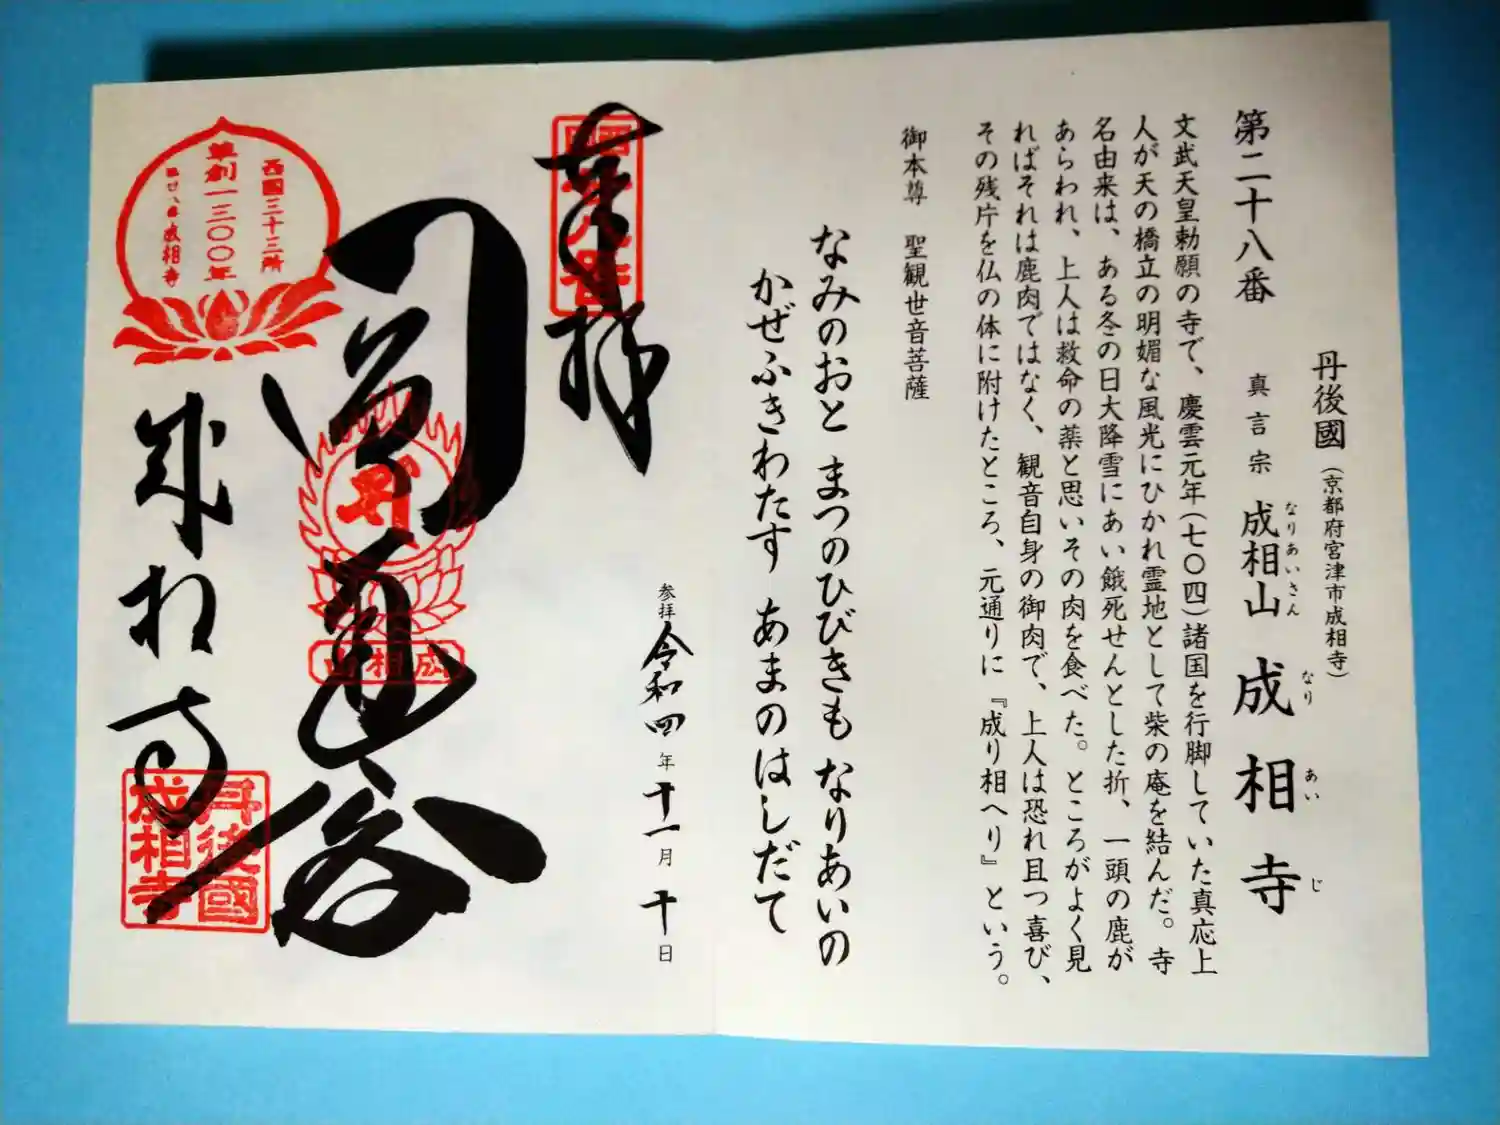 丹後國(京都府宮津市成相寺)
第二十八番 真言宗 成相山 成相寺
なりあいさん なり あい じ
文武天皇勅願の寺で、慶雲元年(七〇四)諸国を行脚していた真応上
人が天の橋立の明媚な風光にひかれ霊地として柴の庵を結んだ。寺
名由来は、ある冬の日大降雪にあい餓死せんとした折、一頭の鹿が
あらわれ、上人は救命の薬と思いその肉を食べた。ところがよく見
ればそれは鹿肉ではなく、観音自身の御肉で、上人は恐れ且つ喜び、
その残片を仏の体に附けたところ、元通りに『成り相へり』という。
御本尊 聖観世音菩薩
なみのおと まつのひびきも なりあいの
かぜふきわたす あまのはしだて
奉拝
参拝 令和四年十一月十日
成相山
西國三十三所
草創一三〇〇年
第廿八番成相寺
成相寺
丹後國
成相寺